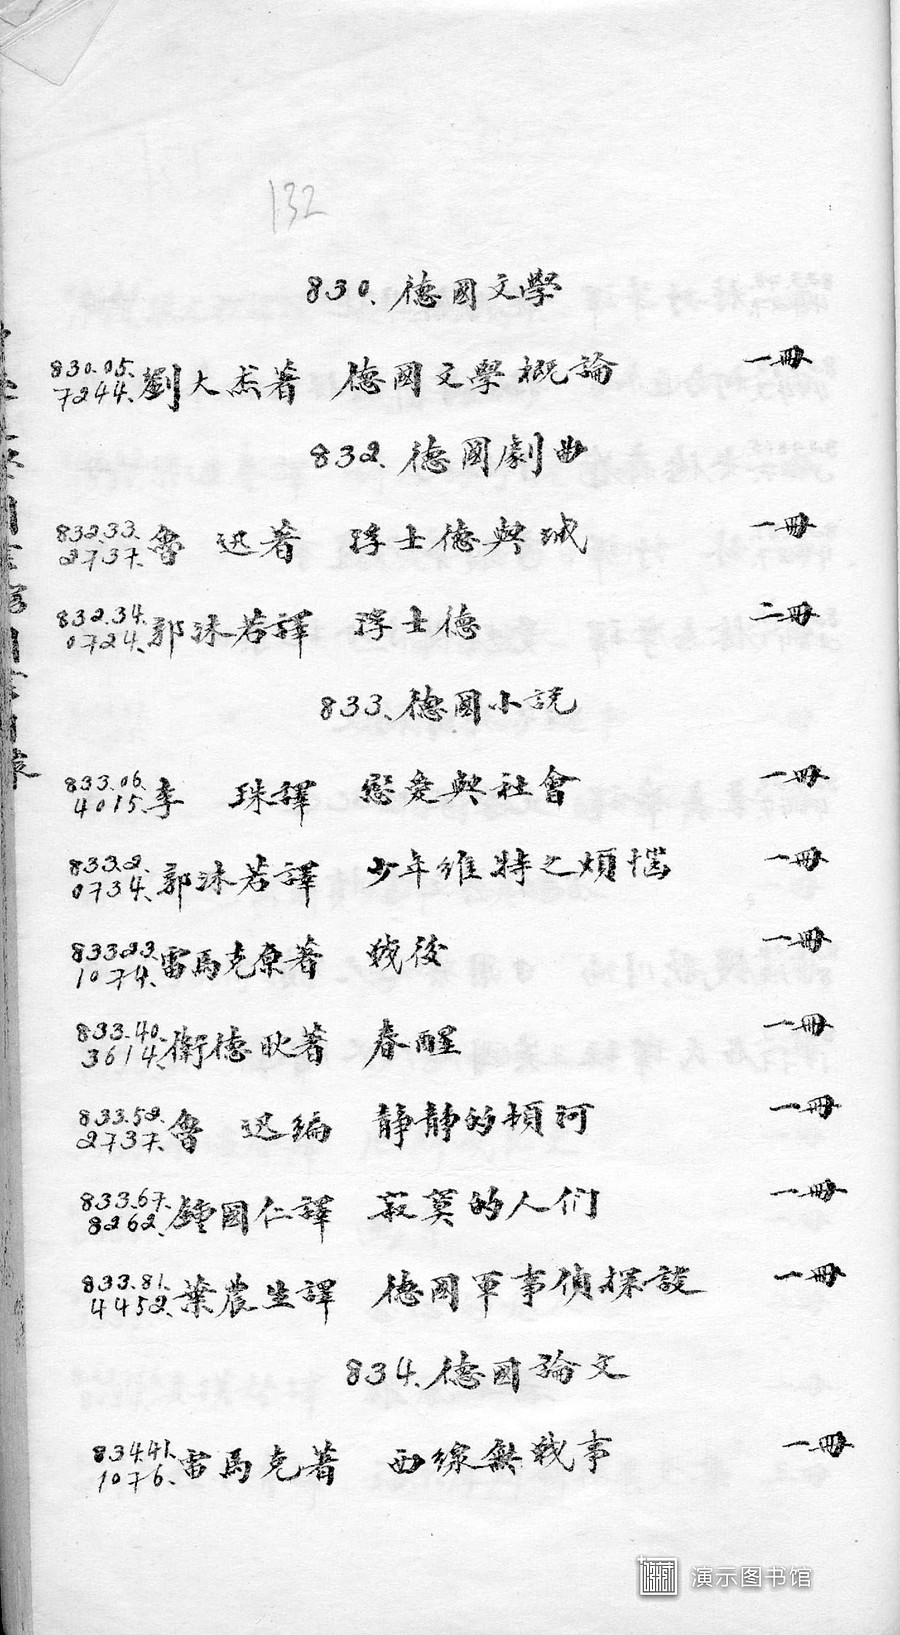 132
830、德國文學
830.05. 7244. 劉大杰著 德國文學概論 一冊
832. 德國劇曲
832.33. 2737. 魯 迅著 浮士德與城 一冊
832.34. 0724. 郭沫若譯 浮士德 二冊
833、德國小說
833.06. 4015. 李 珠譯 戀愛與社會 一冊
833.2. 0734. 郭沫若譯 少年維特之煩惱 一冊
833.23. 1074. 雷馬克原著 戰後 一冊
833.40. 3614. 衛德耿著 春醒 一冊
833.52. 2737. 魯 迅編 靜靜的頓河 一冊
833.67. 8262. 鍾國仁譯 寂寞的人们 一冊
833.81. 4452. 葉農生譯 德國軍事偵探談 一冊
834. 德國論文
834.41. 1076. 雷馬克著 西線無戰事 一冊
演示图书馆